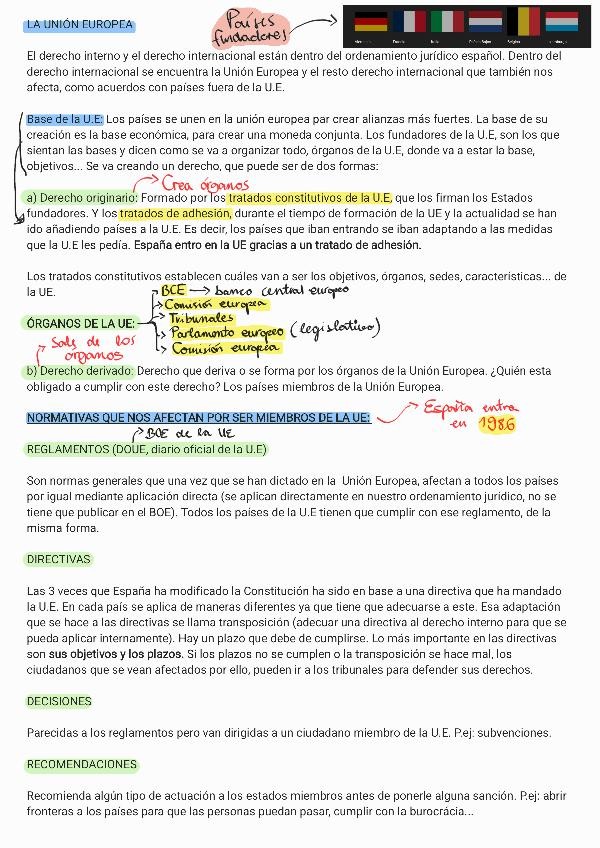 LA UNIÓN EUROPEA
Países
fundadores
Alemania Francia Italia Países Bajos Bélgica Luxemburgo
El derecho interno y el derecho internacional están dentro del ordenamiento jurídico español. Dentro del
derecho internacional se encuentra la Unión Europea y el resto derecho internacional que también nos
afecta, como acuerdos con países fuera de la U.E.
Base de la U.E: Los países se unen en la unión europea par crear alianzas más fuertes. La base de su
creación es la base económica, para crear una moneda conjunta. Los fundadores de la U.E, son los que
sientan las bases y dicen como se va a organizar todo, órganos de la U.E, donde va a estar la base,
objetivos... Se va creando un derecho, que puede ser de dos formas:
Crea órganos
a) Derecho originario: Formado por los tratados constitutivos de la U.E, que los firman los Estados
fundadores. Y los tratados de adhesión, durante el tiempo de formación de la UE y la actualidad se han
ido añadiendo países a la U.E. Es decir, los países que iban entrando se iban adaptando a las medidas
que la U.E les pedía. España entro en la UE gracias a un tratado de adhesión.
Los tratados constitutivos establecen cuáles van a ser los objetivos, órganos, sedes, características... de
la UE.
BCE → banco central europeo
Comisión europea
ÓRGANOS DE LA UE:
Tribunales
Parlamento europeo (legislativo)
Comisión europea
Sale de los
órganos
b) Derecho derivado: Derecho que deriva o se forma por los órganos de la Unión Europea. ¿Quién esta
obligado a cumplir con este derecho? Los países miembros de la Unión Europea.
NORMATIVAS QUE NOS AFECTAN POR SER MIEMBROS DE LA UE:
España entra
en 1986
BOE de la UE
REGLAMENTOS (DOUE, diario oficial de la U.E)
Son normas generales que una vez que se han dictado en la Unión Europea, afectan a todos los países
por igual mediante aplicación directa (se aplican directamente en nuestro ordenamiento jurídico, no se
tiene que publicar en el BOE). Todos los países de la U.E tienen que cumplir con ese reglamento, de la
misma forma.
DIRECTIVAS
Las 3 veces que España ha modificado la Constitución ha sido en base a una directiva que ha mandado
la U.E. En cada país se aplica de maneras diferentes ya que tiene que adecuarse a este. Esa adaptación
que se hace a las directivas se llama transposición (adecuar una directiva al derecho interno para que se
pueda aplicar internamente). Hay un plazo que debe de cumplirse. Lo más importante en las directivas
son sus objetivos y los plazos. Si los plazos no se cumplen o la transposición se hace mal, los
ciudadanos que se vean afectados por ello, pueden ir a los tribunales para defender sus derechos.
DECISIONES
Parecidas a los reglamentos pero van dirigidas a un ciudadano miembro de la U.E. P.ej: subvenciones.
RECOMENDACIONES
Recomienda algún tipo de actuación a los estados miembros antes de ponerle alguna sanción. P.ej: abrir
fronteras a los países para que las personas puedan pasar, cumplir con la burocracia...